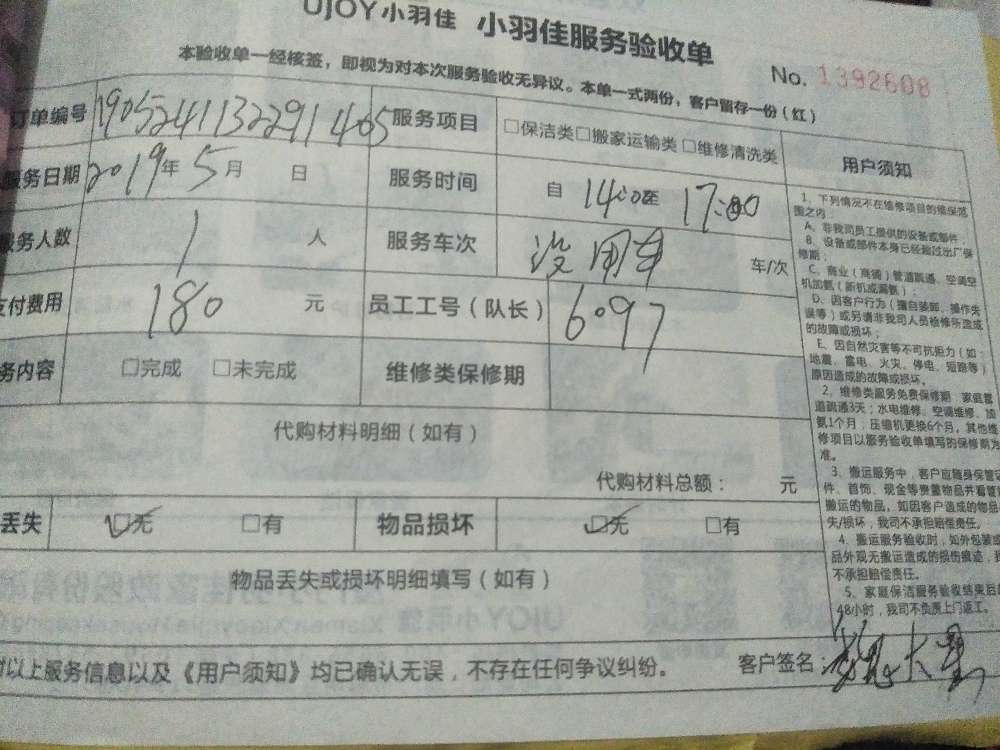 UJOY小羽佳 小羽佳服务验收单
本验收单一经核签，即视为对本次服务验收无异议。本单一式两份，客户留存一份（红）
No. 1392608
订单编号 1905241132291405 服务项目 □保洁类□搬家运输类□维修清洗类 用户须知
服务日期 2019年5月 日 服务时间 自 14:00至 17:00
服务人数 1 人 服务车次 没用车 车/次
支付费用 180 元 员工工号（队长） 6097
务内容 □完成 □未完成 维修类保修期
代购材料明细（如有）
代购材料总额： 元
丢失 ☑无 □有 物品损坏 ☑无 □有
物品丢失或损坏明细填写（如有）
对以上服务信息以及《用户须知》均已确认无误，不存在任何争议纠纷。 客户签名：
1、下列情况不在维修项目的维保范
围之内：
A、非我司员工提供的设备或部件；
B、设备或部件本身已经超过出厂保
修期；
C、商业（商铺）管道疏通、空调空
机加氨（新机或漏氨）
D、因客户行为（擅自装卸、操作失
误等）或另请非我司人员检修所造成
的故障或损坏；
E、因自然灾害等不可抗拒力（如：
地震、雷电、火灾、停电、短路等）
原因造成的故障或损坏。
2、维修类服务免费保修期：家庭管
道疏通3天；水电维修、空调维修、加
氨1个月；压缩机更换6个月，其他维
修项目以服务验收单填写的保修期为
准。
3、搬运服务中，客户应随身保管证
件、首饰、现金等贵重物品并看管
搬运的物品，如因客户造成的物品
失/损坏，我司不承担赔偿责任。
4、搬运服务验收时，如外包装或
品外观无搬运造成的损伤痕迹，我
不承担赔偿责任。
5、家庭保洁服务验收结束后
48小时，我司不负责上门返工。